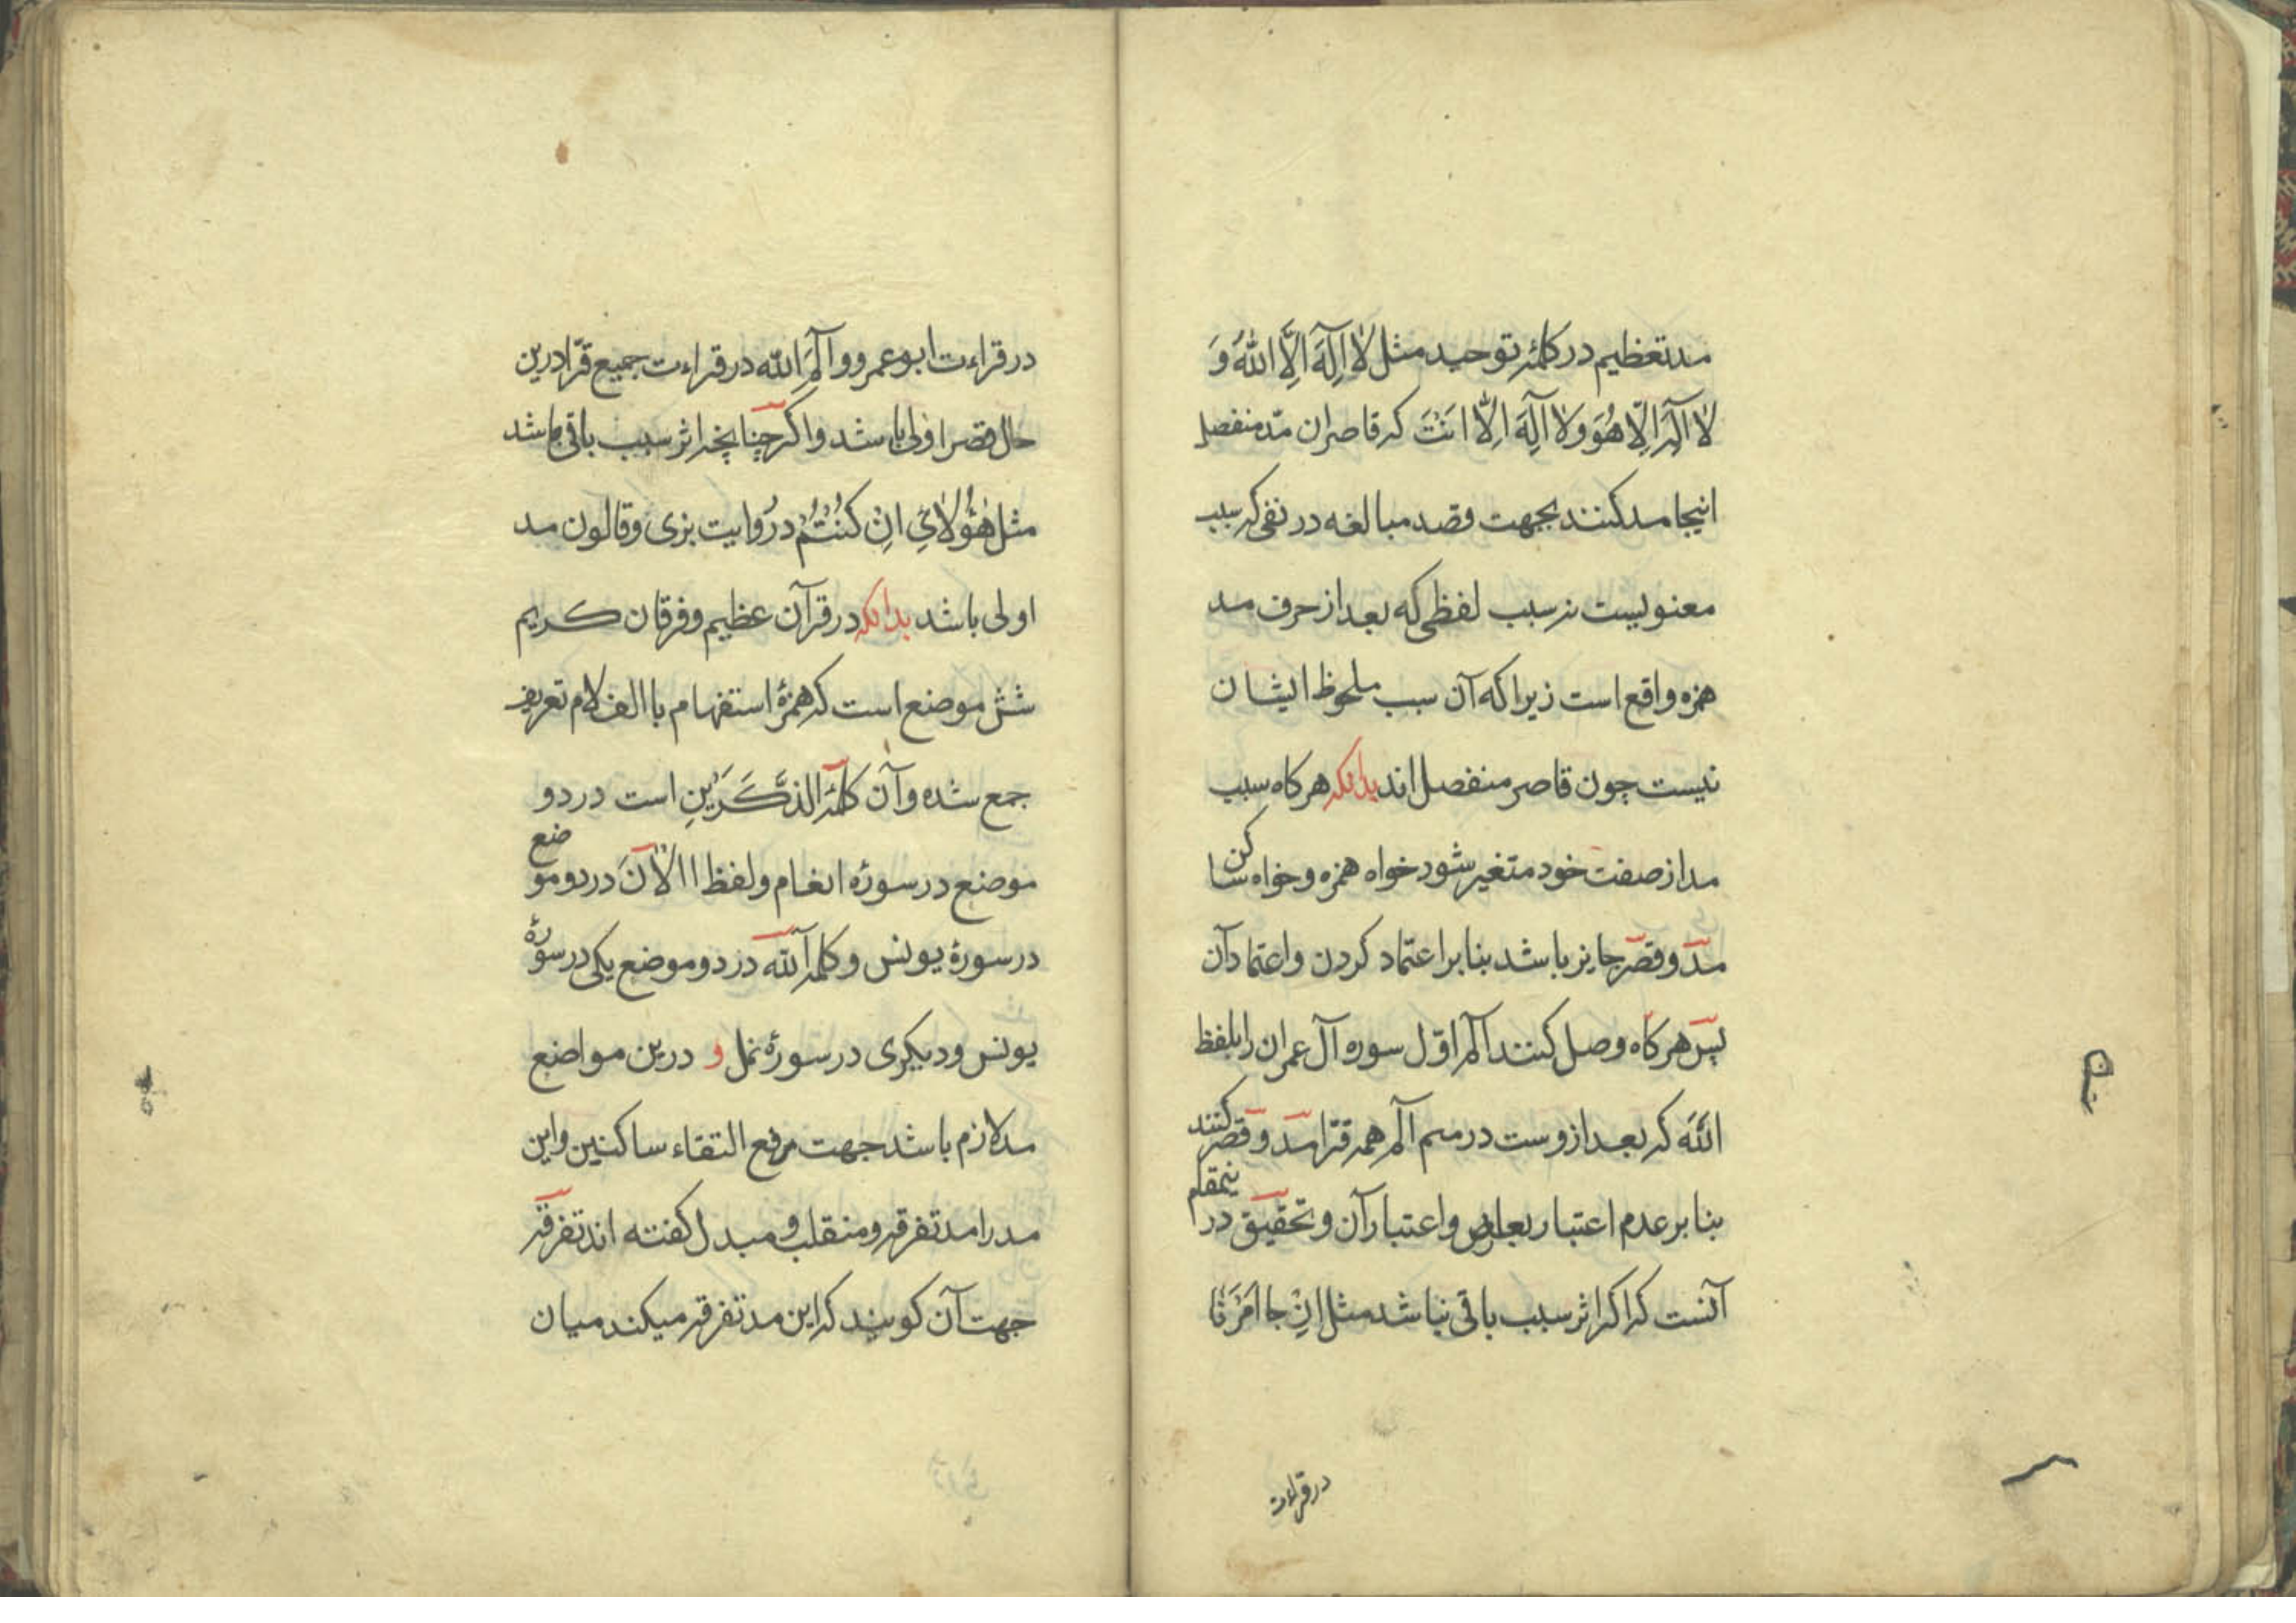 مد تعظیم در کلمهٔ توحید مثل لَا اِلٰهَ اِلَّا اللهُ وَ
لا آله الّا هُوَ وَلا آلِهَ اِلّا انَتَ که قاصران مدّ منفصل
اینجا مد کنند بجهت قصد مبالغه در نفی که سبب
معنویست نه سبب لفظی که بعد از حرف مد
همزه واقع است زیرا که آن سبب ملحوظ ایشان
نیست چون قاصر منفصل اند بدانکه هرکاه سبب
مد از صفت خود متغیر شود خواه همزه و خواه ساکن
مدّ و قصر جایز باشد بنا بر اعتماد کردن و اعتماد آن
پس هرکاه وصل کنند آلم اوّل سوره آل عمران را بلفظ
اللّه که بعد ازوست در میم آلم همه قرّا مدّ و قصر کنند
بنا بر عدم اعتبار بعارض و اعتبار آن و تحقیق درینمقام
آنست که اکر اثر سبب باقی نباشد مثل اِنْ جا اَمْرَنَا
در قراءت
در قراءت ابو عمرو و آلَمَ اللّه در قراءت جمیع قرّا درین
حال قصر اولی باشد و اکر چنانچه اثر سبب باقی باشد
مثل هٰؤُلَائِ اِنْ کُنْتُمْ در روایت بزی و قالون مد
اولی باشد بدانکه در قرآن عظیم و فرقان کریم
شش موضع است که همزهٔ استفهام با الف لام تعریف
جمع شده و آن کلمهٔ آلذَّکَرَیْنِ است در دو
موضع در سورهٔ انعام و لفظ االْآنَ در دو موضع
در سورهٔ یونس و کلمه آللّه در دو موضع یکی در سورهٔ
یونس و دیکری در سورهٔ نمل و درین مواضع
مد لازم باشد جهت رفع التقاء ساکنین و این
مد را مد تفرقه و منقلب و مبدل کفته اند تفرقه
جهت آن کویند که این مد تفرقه میکند میان